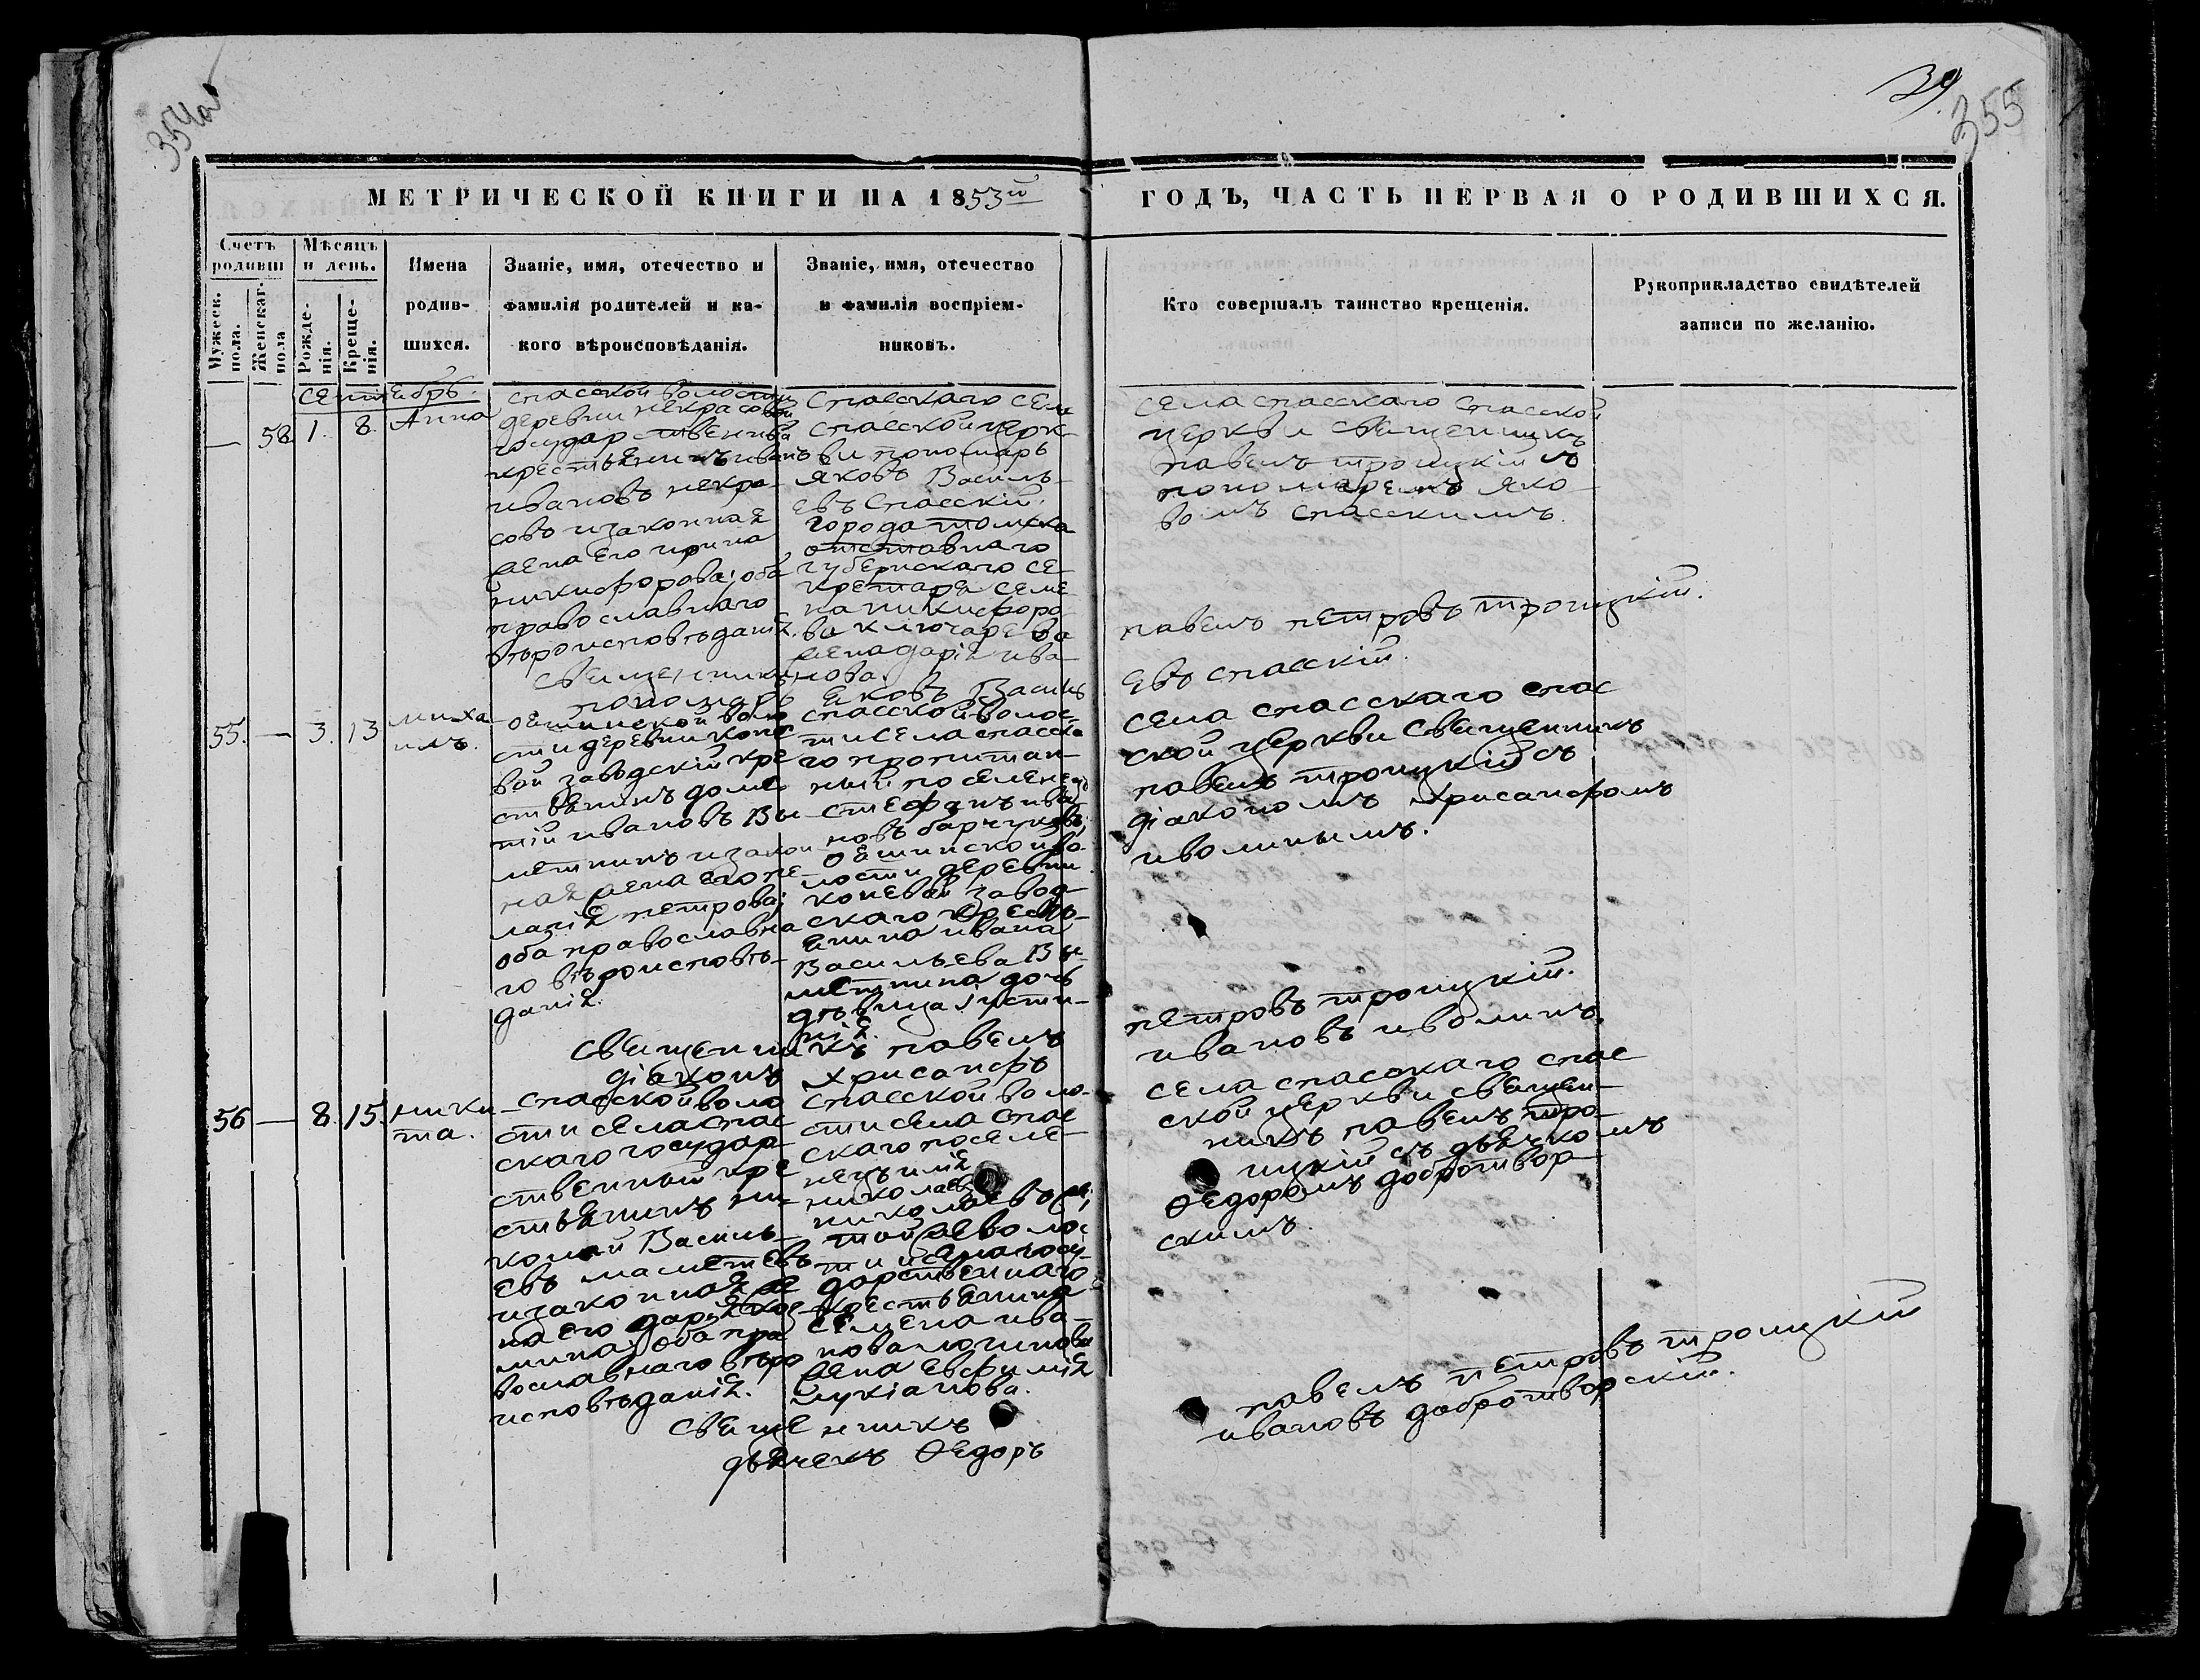 354об
39
355
МЕТРИЧЕСКОЙ КНИГИ НА 1853й
ГОДЪ, ЧАСТЬ ПЕРВАЯ О РОДИВШИХСЯ.
Счетъ родивш
Мужеск. пола.
Женскаг. пола
Мѣсяцъ и день.
Рожде-нія.
Креще-нія.
Имена
родив-
шихся.
Званіе, имя, отечество и
фамилія родителей и ка-
кого вѣроисповѣданія.
Званіе, имя, отечество
и фамилія воспріем-
никовъ.
Кто совершалъ таинство крещенія.
Рукоприкладство свидѣтелей
записи по желанію.
Сентябрь.
— 58 1. 8. Анна
спасской волости
деревни некрасовой
государственный
крестьянинъ иванъ
ивановъ некра-
совъ и законная
жена его ирина
никифорова; оба
православнаго
вѣроисповѣданія.
Спасскаго села
спасской церк-
ви пономарь
яковъ Василь-
евъ Спасскій.
города томска
отставнаго
губернскаго се-
кретаря семе
на никифоро
ва ключарева
жена дарія ива-
нова.
села спасскаго спасской
церкви священникъ
павелъ троицкій съ
пономаремъ яко
вомъ спасскимъ.
священникъ
павелъ петровъ троицкій.
пономарь яковъ Василь
евъ спасскій.
55. — 3. 13 миха
илъ.
ояшинской воло
сти деревни коне
вой заводскій кре
стьянинъ доме
тій ивановъ Вы
метнинъ и закон
ная жена его пе
лагія петрова;
оба православна
го вѣроисповѣ-
данія.
спасской волос-
ти села спасска
го пропитан-
ный поселенецъ
стефанъ ива
новъ барчуковъ;
ояшинской во-
лости деревни
коневой завод-
скаго кресть-
янина ивана
Васильева Вы-
метнина дочь
дѣвица іусти-
нія.
села спасскаго спас
ской церкви священникъ
павелъ троицкій съ
діакономъ хрисанфомъ
иволинымъ.
священникъ павелъ
петровъ троицкій.
діаконъ хрисанфъ
ивановъ иволинъ.
56 — 8. 15. ники
та.
спасской воло
сти села спас
скаго государ
ственный кре
стьянинъ ни-
колай Василь-
евъ маметевъ
и законная же
на его дарія кос-
мина; оба пра
вославнаго вѣро
исповѣданія.
спасской воло-
сти села спас
скаго поселе-
нецъ илія
николаевъ
той же воло
сти и села госу-
дарственнаго
крестьянина
семена ива-
нова логинова
жена евфимія
лукіанова.
села спасскаго спас
ской церкви священ-
никъ павелъ тро-
ицкій съ дьячкомъ
Ѳедоромъ добротвор-
скимъ.
священникъ
павелъ петровъ троицкій
дьячекъ Ѳедоръ
ивановъ добротворскій.